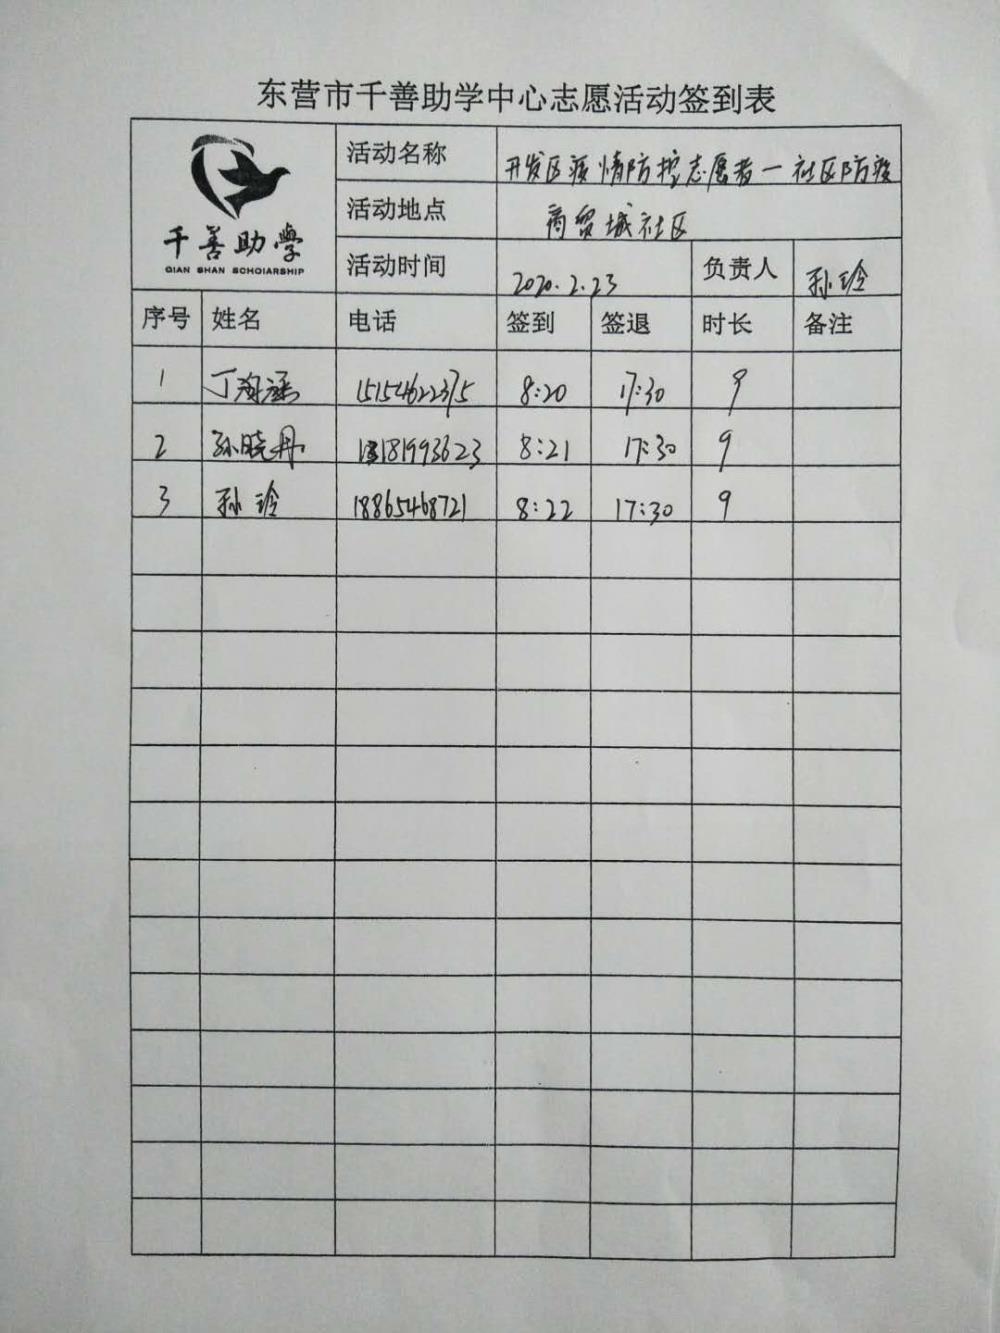 东营市千善助学中心志愿活动签到表
千善助學
QIAN SHAN SCHOIARSHIP
活动名称 开发区疫情防控志愿者一社区防疫
活动地点 商贸城社区
活动时间 2020.2.23 负责人 孙玲
序号 姓名 电话 签到 签退 时长 备注
1 丁海涵 15154622375 8:20 17:30 9
2 孙晓丹 13181993623 8:21 17:30 9
3 孙玲 18865468721 8:22 17:30 9